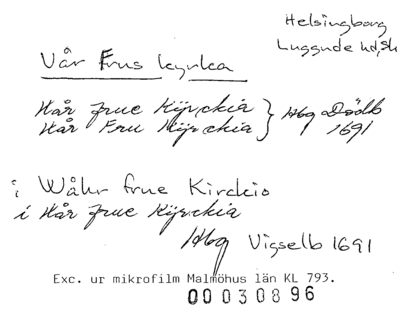 Helsingborg
Luggude hd, Sk
Vår Frus kyrka
Wår frue Kijrckia } Hbg Dödb
Wår Fru Kijrckia } 1691
i Wåhr frue Kirckio
i Wår frue Kijrckia
Hbg Vigselb 1691
Exc. ur mikrofilm Malmöhus län KL 793.
00030896